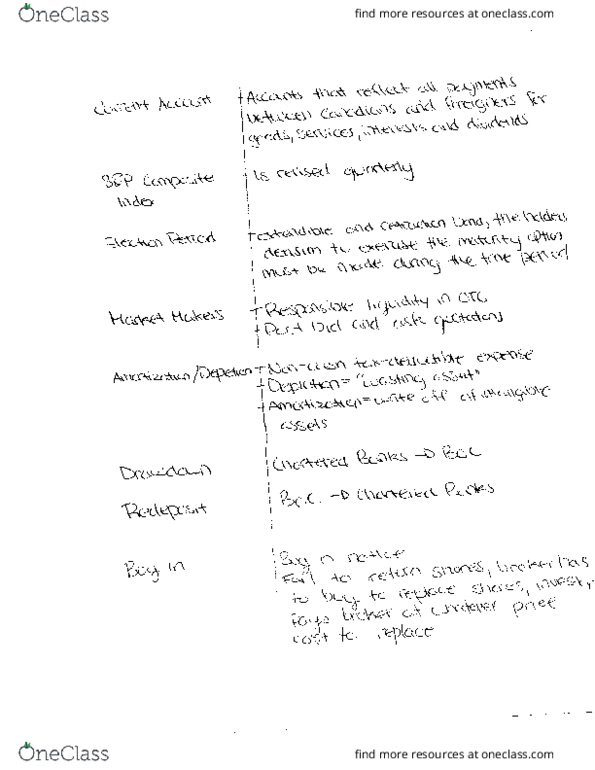 OneClass
find more resources at oneclass.com
Current Account
Accounts that reflect all payments
between Canadians and foreigners for
goods, services, interests and dividends
S&P Composite
Index
Is revised quarterly
Election Period
extendible and retraction bond, the holders
decision to exercise the maturity option
must be made during the time period
Market Makers
Responsible liquidity in OTC
Post bid and ask quotations
Amortization/Depletion
Non-cash tax-deductible expense
Depletion = "wasting asset"
Amortization = write off of intangible
assets
Drawdown
Chartered Banks → BOC
Redeposit
B.O.C. → Chartered Banks
Buy in
Buy in notice
Fail to return shares, broker has
to buy to replace shares,
pays broker at whatever price
cost to replace
OneClass
find more resources at oneclass.com